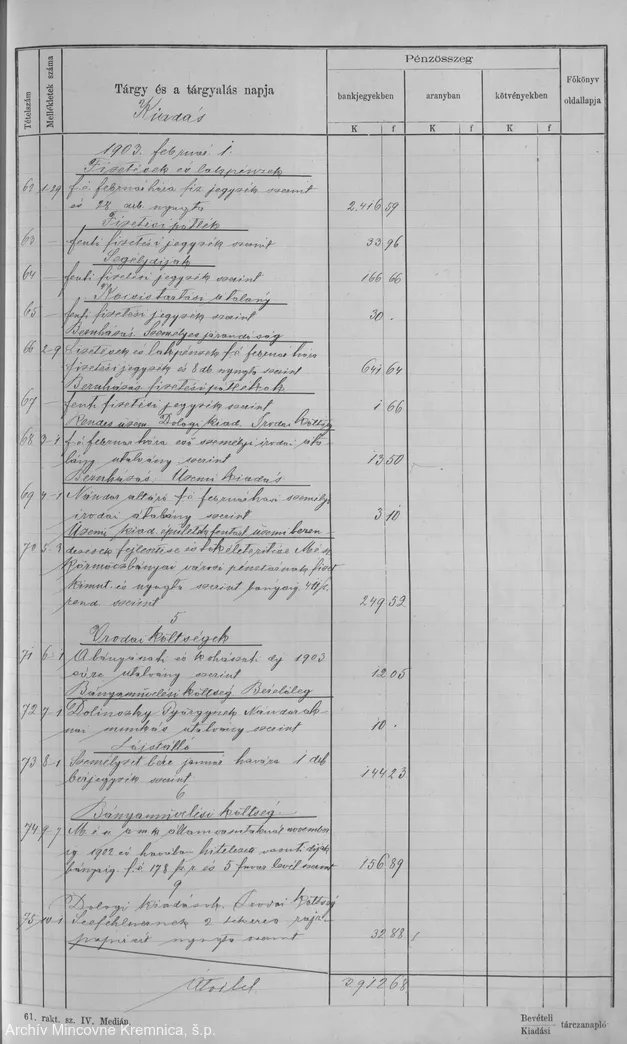 Tételszám
Mellékletek száma
Tárgy és a tárgyalás napja
Kiadás
Pénzösszeg
bankjegyekben
aranyban
kötvényekben
Főkönyv
oldallapja
K f K f K f
1903. február 1.
Fizetések és lakpénzek
62 1-29 f. é. február hóra fiz. jegyzék szerint
és 28 drb nyugta 2.416 59
Fizetési pótlék
63 - fenti fizetési jegyzék szerint 33 96
Segélydíjak
64 - fenti fizetési jegyzék szerint 166 66
Kocsitartási átalány
65 - fenti fizetési jegyzék szerint 30 .
Bérnházas. Személyes járandóság
66 2-9 Fizetések és lakpénzek f. é. február hóra
fizetési jegyzék és 8 db nyugta szerint 641 64
fizetési pótlékok
67 - fenti fizetési jegyzék szerint 1 66
Rendes üzem. Dologi kiad. Irodai költség
68 3-1 f. é. február hóra személyi irodai áta-
lány utalvány szerint 13 50
Üzemi kiadás
69 4-1 Nándor altáró f. é. február havi személyi
irodai átalány szerint 3 10
Üzemi kiad. épületek fentart. üzemi beren-
70 5-3 dezések fejlesztése és tökéletesítése
Körmöczbánya városi pénztárnak fizet.
kimut. és nyugta szerint
rend. szerint 249 52
5
Irodai költségek
71 6-1 A bányászati és kohászati 1903
évre utalvány szerint 12 05
Bányamüvelési költség
72 7-1 Dolinszky Györgynek Nándor ak-
nai munkás utalvány szerint 10 .
73 8-1 Személyzet bére január havára 1 drb
bérjegyzék szerint 144 23
6
Bányamüvelési költség
74 9-7 M. és a m. k. államvasutaknak novem
1902 évi havában hitelezett
f. é. 178 és 5 levél szerint 156 89
9
Dologi kiadások, Irodai költség
75 10-1 2 tekercs rajz-
papirért nyugta szerint 32 88
Átvitel 3.912 68
61. rakt. sz. IV. Medián.
Bevételi
Kiadási
tárczanapló
Archív Mincovne Kremnica, š.p.